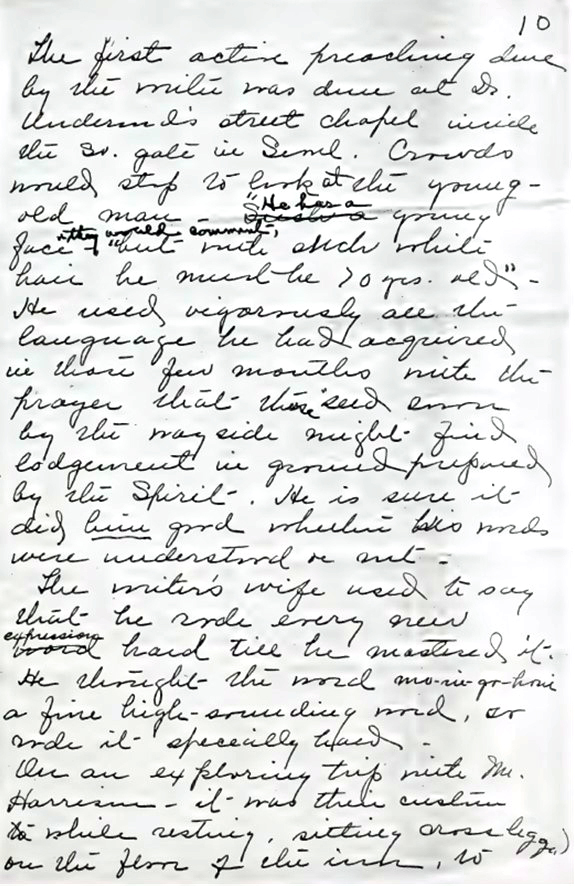 10
The first active preaching done
by the writer was done at Dr.
Underwood's street chapel inside
the So. gate in Seoul. Crowds
would stop to look at the young-
old man - "He has a young
face" they would comment, "but with such white
hair he must be 70 yrs. old" -
He used vigorously all the
language he had acquired
in those few months with the
prayer that those seed sown
by the wayside might find
lodgement in ground prepared
by the Spirit. He is sure it
did him good whether his words
were understood or not -
The writer's wife used to say
that he rode every new
expression hard till he mastered it.
He thought the word
a fine high-sounding word, so
rode it specially hard -
On an exploring trip with Mr.
Harrison - it was their custom
while resting, sitting cross legged
on the floor of the inn, to